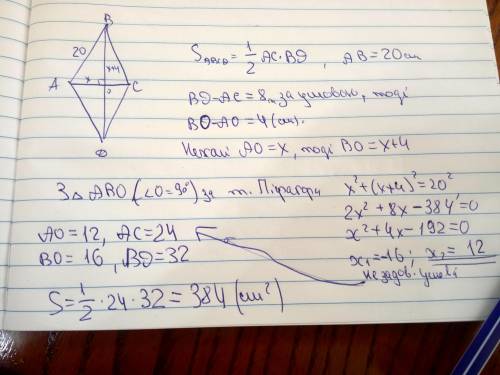 B
20
x+4
A
x
O
C
D
S_ABCD = 1/2 AC·BD, AB=20 см
BD-AC=8, за умовою, тоді
BO-AO=4 (см).
Нехай AO=x, тоді BO=x+4
З △ABO (∠O=90°) за т. Піфагора
x²+(x+4)²=20²,
2x²+8x-384=0
x²+4x-192=0
x₁=-16; x₂=12
не задов. умові
AO=12, AC=24
BO=16, BD=32
S=1/2·24·32=384 (см²)